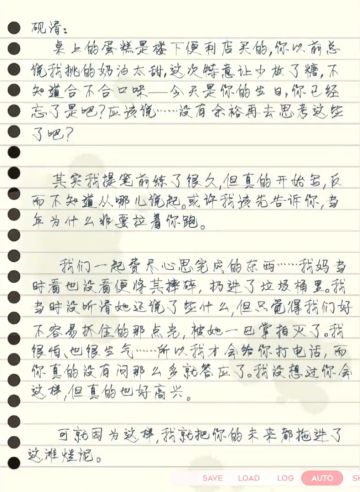 砚清：
桌上的蛋糕是楼下便利店买的，你以前总
说我挑的奶油太甜，这次特意让少放了糖，不
知道合不合口味——今天是你的生日，你已经
忘了是吧？应该说……没有余裕再去思考这些
了吧？
其实我提笔前练了很久，但真的开始写，反
而不知道从哪儿说起。或许我该先告诉你，当
年为什么非要拉着你跑。
我们一起费尽心思完成的东西……我妈当
时看也没看便将其摔碎，扔进了垃圾桶里。我
当时没听清她还说了些什么，但只觉得我们好
不容易抓住的那点光，被她一巴掌拍灭了。我
很怕、也很生气……所以我才会给你打电话，而
你真的没有问那么多就答应了。我没想过你会
这样，但真的也好高兴。
可就因为这样，我就把你的未来都拖进了
这滩烂泥。
SAVE LOAD LOG AUTO